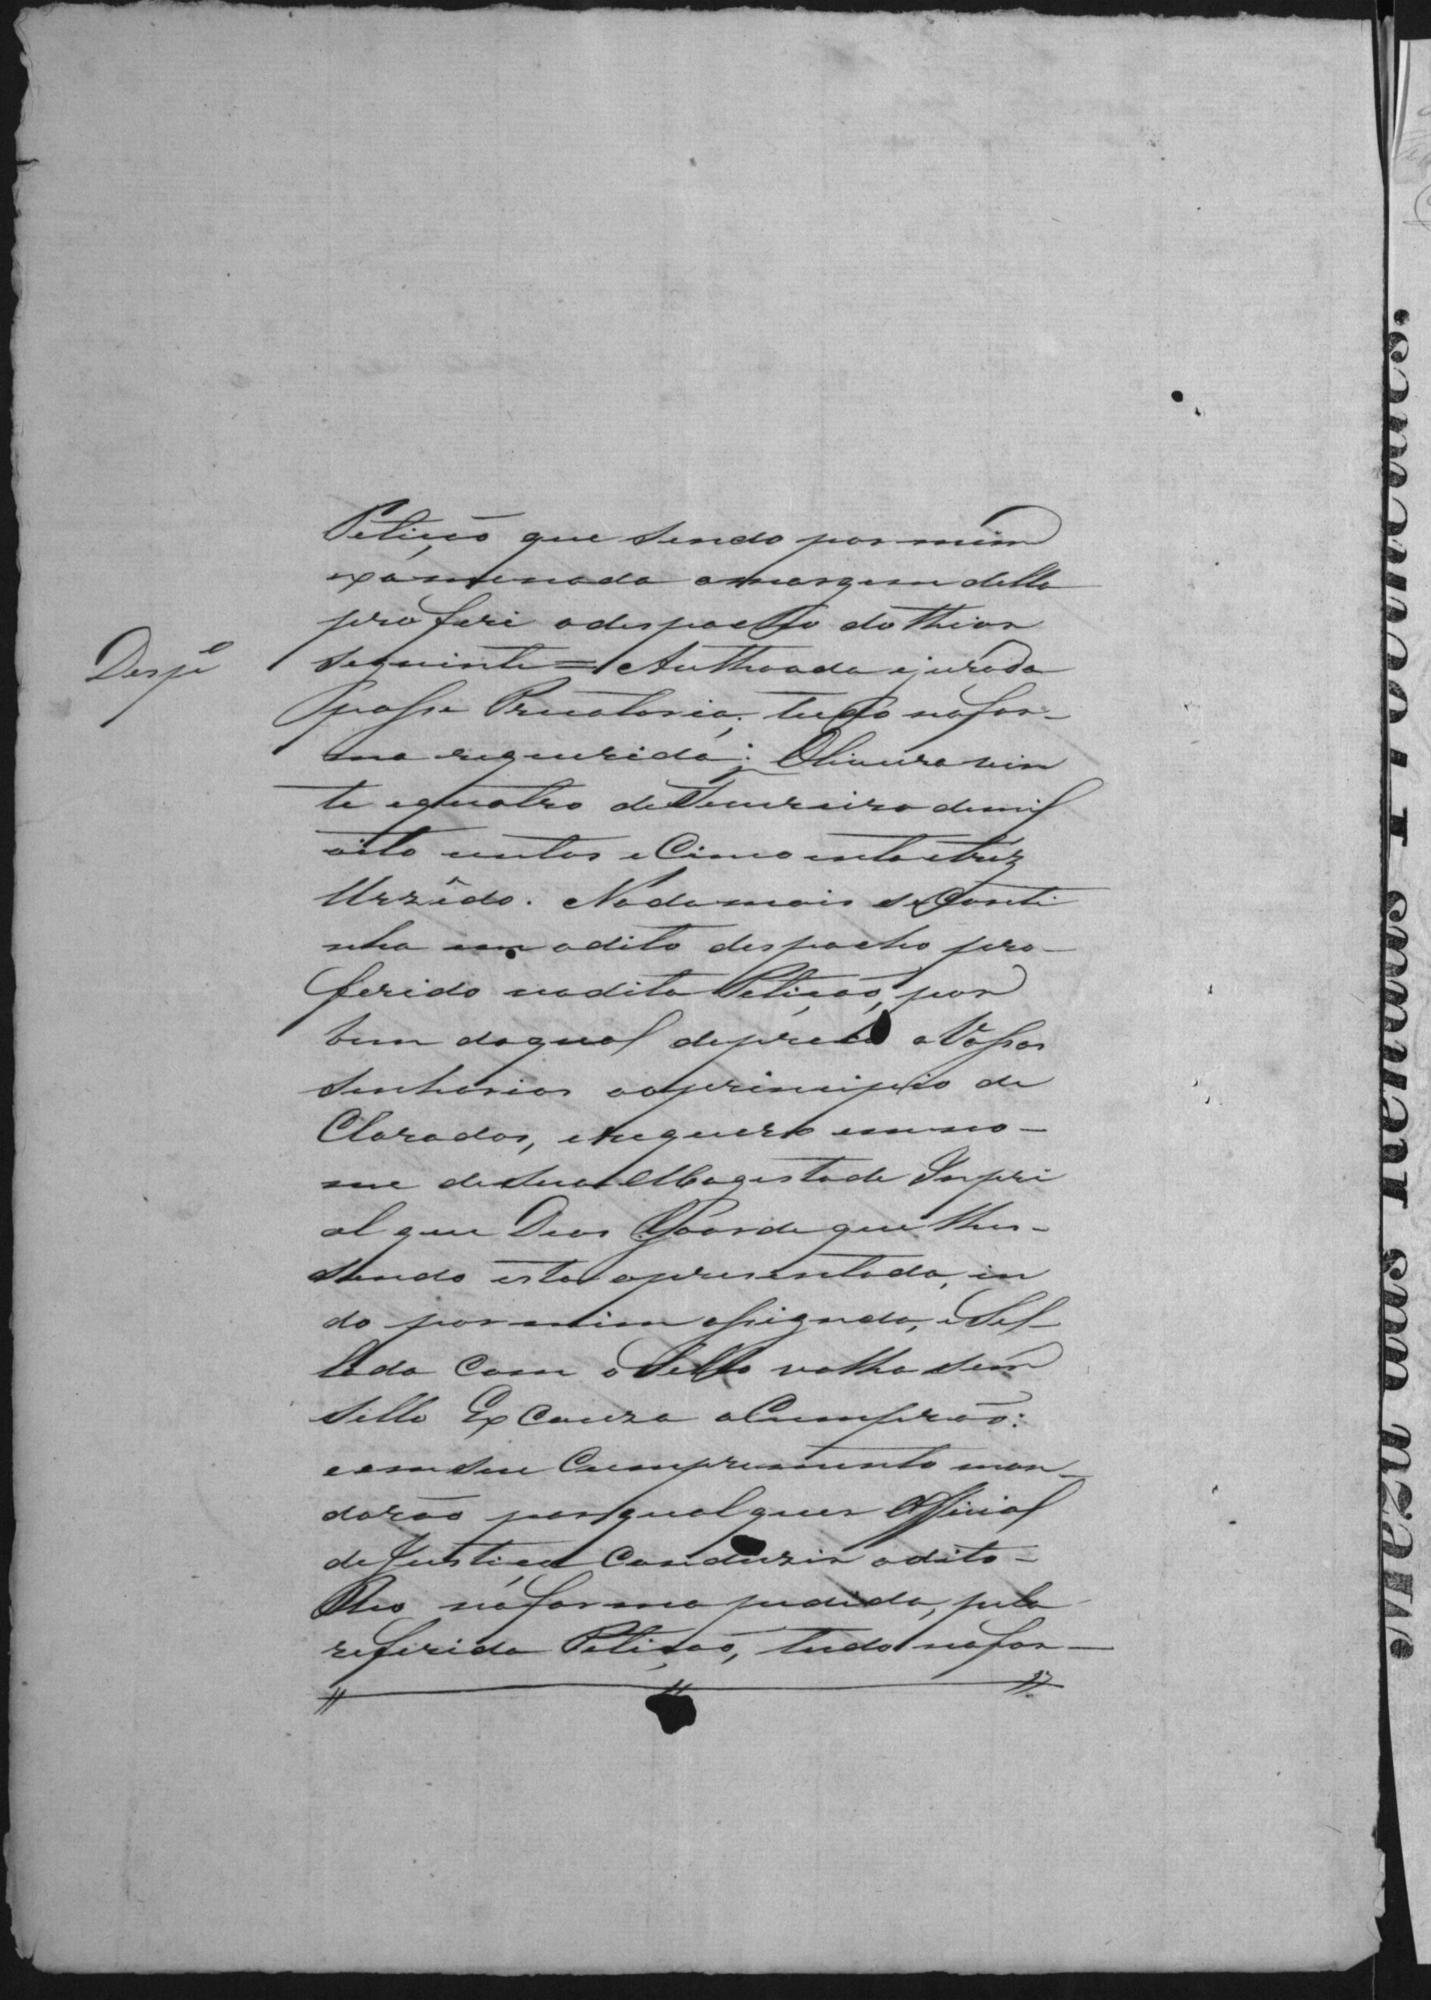 Petiçaõ que sendo por mim
exáminada amargem della
proferi odespacho dotheor
Despº
seguinte = Authoada ejurada
passe Precatoria, tudo nafor-
ma requerida; Oliveira vin
te equatro deFevereiro demil
oito centos eCincoenta etrez
Azzêdo. Nada mais se Conti
nha em odito despacho pro-
ferido nadita Petiçaõ, por
bem daqual depreco aVossas
Senhorias aoprincipio de
Clarados, erequero emno-
me deSua Magestade Inperi
al que Deos Goarde que lhes
sendo esta apresentada, in
do por mim assignada, eSel
lada Com oSello valha sem
sello Ex Cauza aCumpraõ:
eemseu Cumprimento man-
daraõ porqualquer Official
deJustiça Conduzir odito
Reo náforma pedida, pela
referida Petiçaõ, tudo nafor-